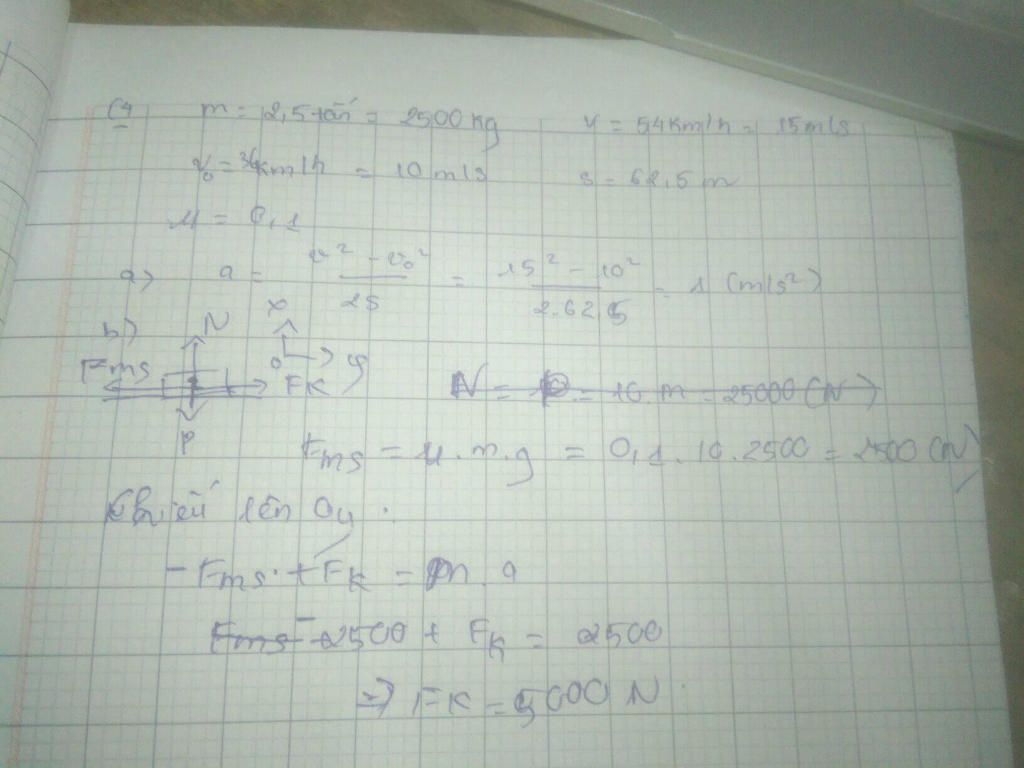 C4 m = 2,5 tấn = 2500 kg v = 54 km/h = 15 m/s
v₀ = 36 km/h = 10 m/s s = 62,5 m
μ = 0,1
a) a = (v² - v₀²)/(2s) = (15² - 10²)/(2.62,5) = 1 (m/s²)
b) N x
Fms O y FK
P
N = P = 10.m = 25000 (N)
Fms = μ.m.g = 0,1.10.2500 = 2500 (N)
Chiếu lên Oy.
- Fms + FK = m.a
Fms - 2500 + FK = 2500
=> FK = 5000 N